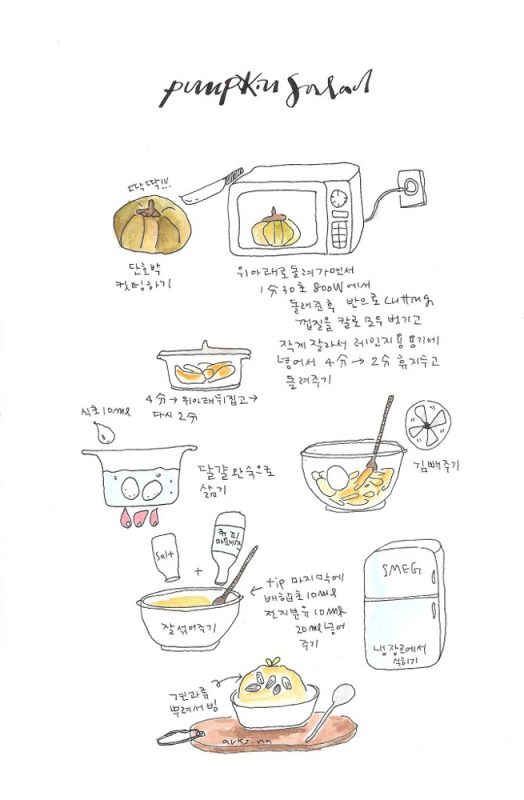 pumpkin salad
딱딱!!!
단호박
컷팅하기
위아래로 돌려가면서
1分30초 800W에서
돌려준후 반으로 cutting
껍질을 칼로 모두 벗기고
작게 잘라서 레인지용 용기에
넣어서 4分 → 2分 휴지두고
돌려주기
4分 → 위아래 뒤집고 →
다시 2分
식초10ml
달걀 완숙으로
삶기
김빼주기
salt
큐피
마요네즈
+
잘 섞어주기
← tip 마지막에
배합초 10ml
전지분유 10ml
20ml 넣어
주기
SMEG
냉장고에서
식히기
견과류
뿌려서 냠